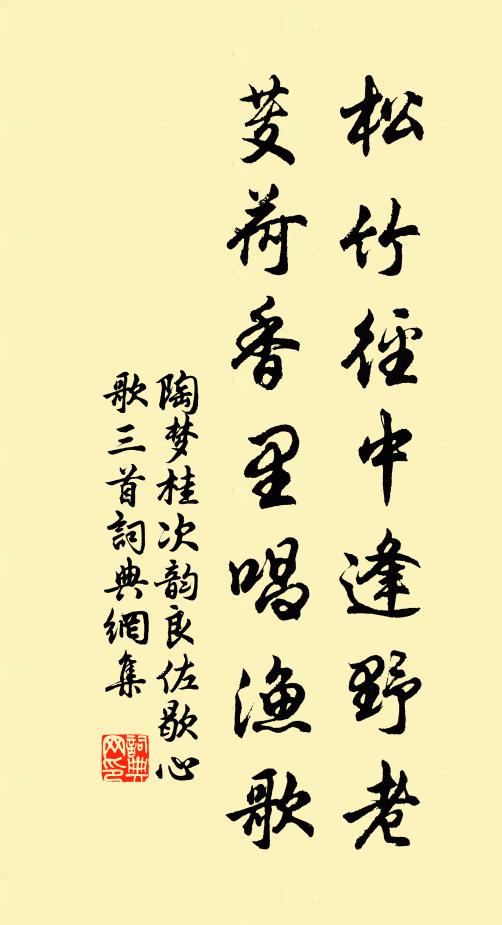 松竹徑中逢野老
芰荷香里唱漁歌
陶梦桂次韵良佐歇心
歌三首詞典網集
詞典
网印